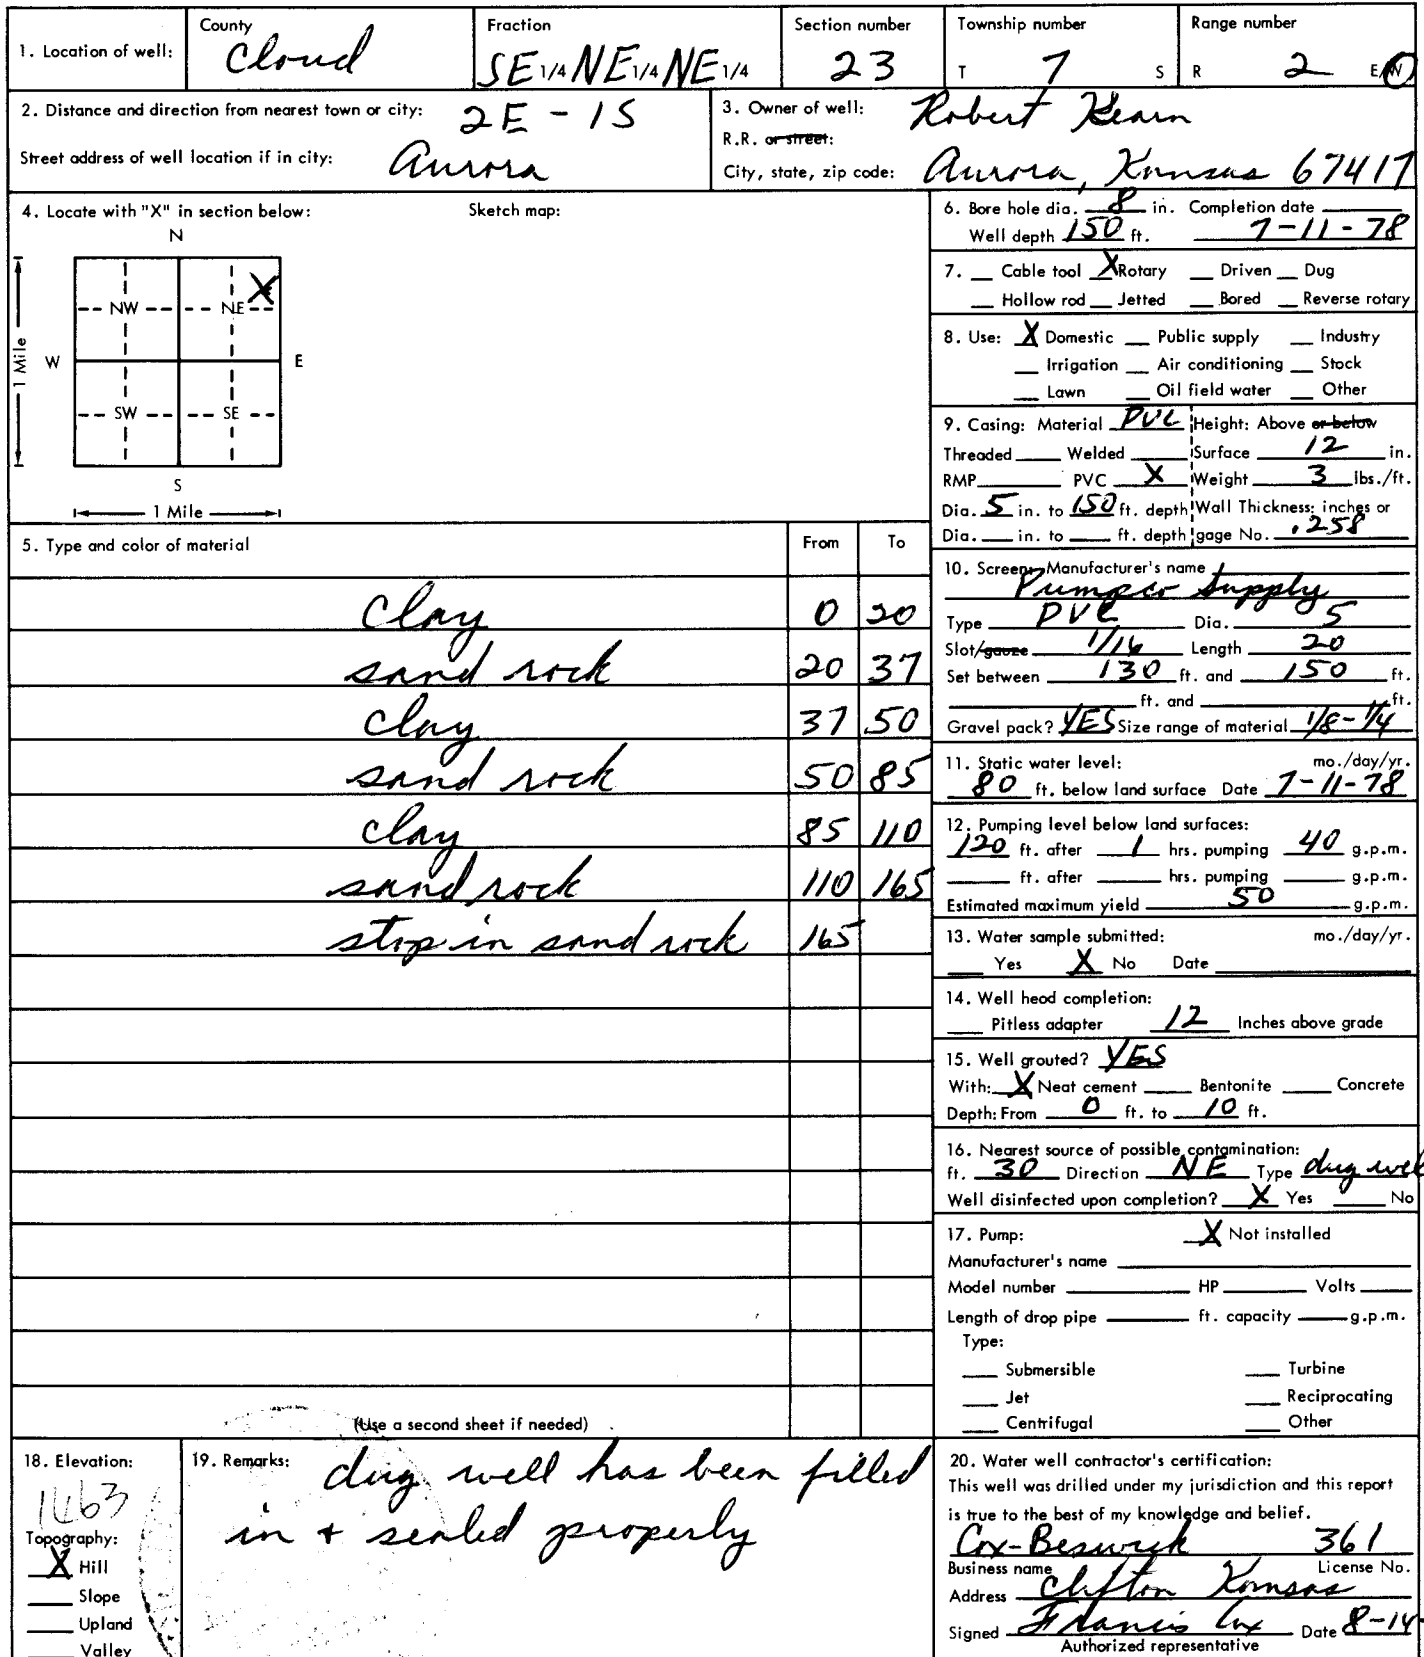 County Fraction Section number Township number Range number
1. Location of well: Cloud SE 1/4 NE 1/4 NE 1/4 23 T 7 S R 2 E/W
2. Distance and direction from nearest town or city: 2E - 1S
Street address of well location if in city: Aurora
3. Owner of well: Robert Kearn
R.R. or street:
City, state, zip code: Aurora, Kansas 67417
4. Locate with "X" in section below: Sketch map:
N
NW NE X
W E
1 Mile
SW SE
S
1 Mile
5. Type and color of material From To
clay 0 20
sand rock 20 37
clay 37 50
sand rock 50 85
clay 85 110
sand rock 110 165
stop in sand rock 165
(Use a second sheet if needed)
6. Bore hole dia. 8 in. Completion date
Well depth 150 ft. 7-11-78
7. Cable tool X Rotary Driven Dug
Hollow rod Jetted Bored Reverse rotary
8. Use: X Domestic Public supply Industry
Irrigation Air conditioning Stock
Lawn Oil field water Other
9. Casing: Material PVC Height: Above or below
Threaded Welded Surface 12 in.
RMP PVC X Weight 3 lbs./ft.
Dia. 5 in. to 150 ft. depth Wall Thickness: inches or
Dia. in. to ft. depth gage No. .258
10. Screen: Manufacturer's name
Pumpco Supply
Type PVC Dia. 5
Slot/gauze 1/16 Length 20
Set between 130 ft. and 150 ft.
ft. and ft.
Gravel pack? YES Size range of material 1/8-1/4
11. Static water level: mo./day/yr.
80 ft. below land surface Date 7-11-78
12. Pumping level below land surfaces:
120 ft. after 1 hrs. pumping 40 g.p.m.
ft. after hrs. pumping g.p.m.
Estimated maximum yield 50 g.p.m.
13. Water sample submitted: mo./day/yr.
Yes X No Date
14. Well head completion:
Pitless adapter 12 Inches above grade
15. Well grouted? YES
With: X Neat cement Bentonite Concrete
Depth: From 0 ft. to 10 ft.
16. Nearest source of possible contamination:
ft. 30 Direction NE Type dug well
Well disinfected upon completion? X Yes No
17. Pump: X Not installed
Manufacturer's name
Model number HP Volts
Length of drop pipe ft. capacity g.p.m.
Type:
Submersible Turbine
Jet Reciprocating
Centrifugal Other
18. Elevation:
1463
Topography:
X Hill
Slope
Upland
Valley
19. Remarks: dug well has been filled
in + sealed properly
20. Water well contractor's certification:
This well was drilled under my jurisdiction and this report
is true to the best of my knowledge and belief.
Cox-Beswick 361
Business name License No.
Address Clifton Kansas
Signed Francis Cox Date 8-14-
Authorized representative